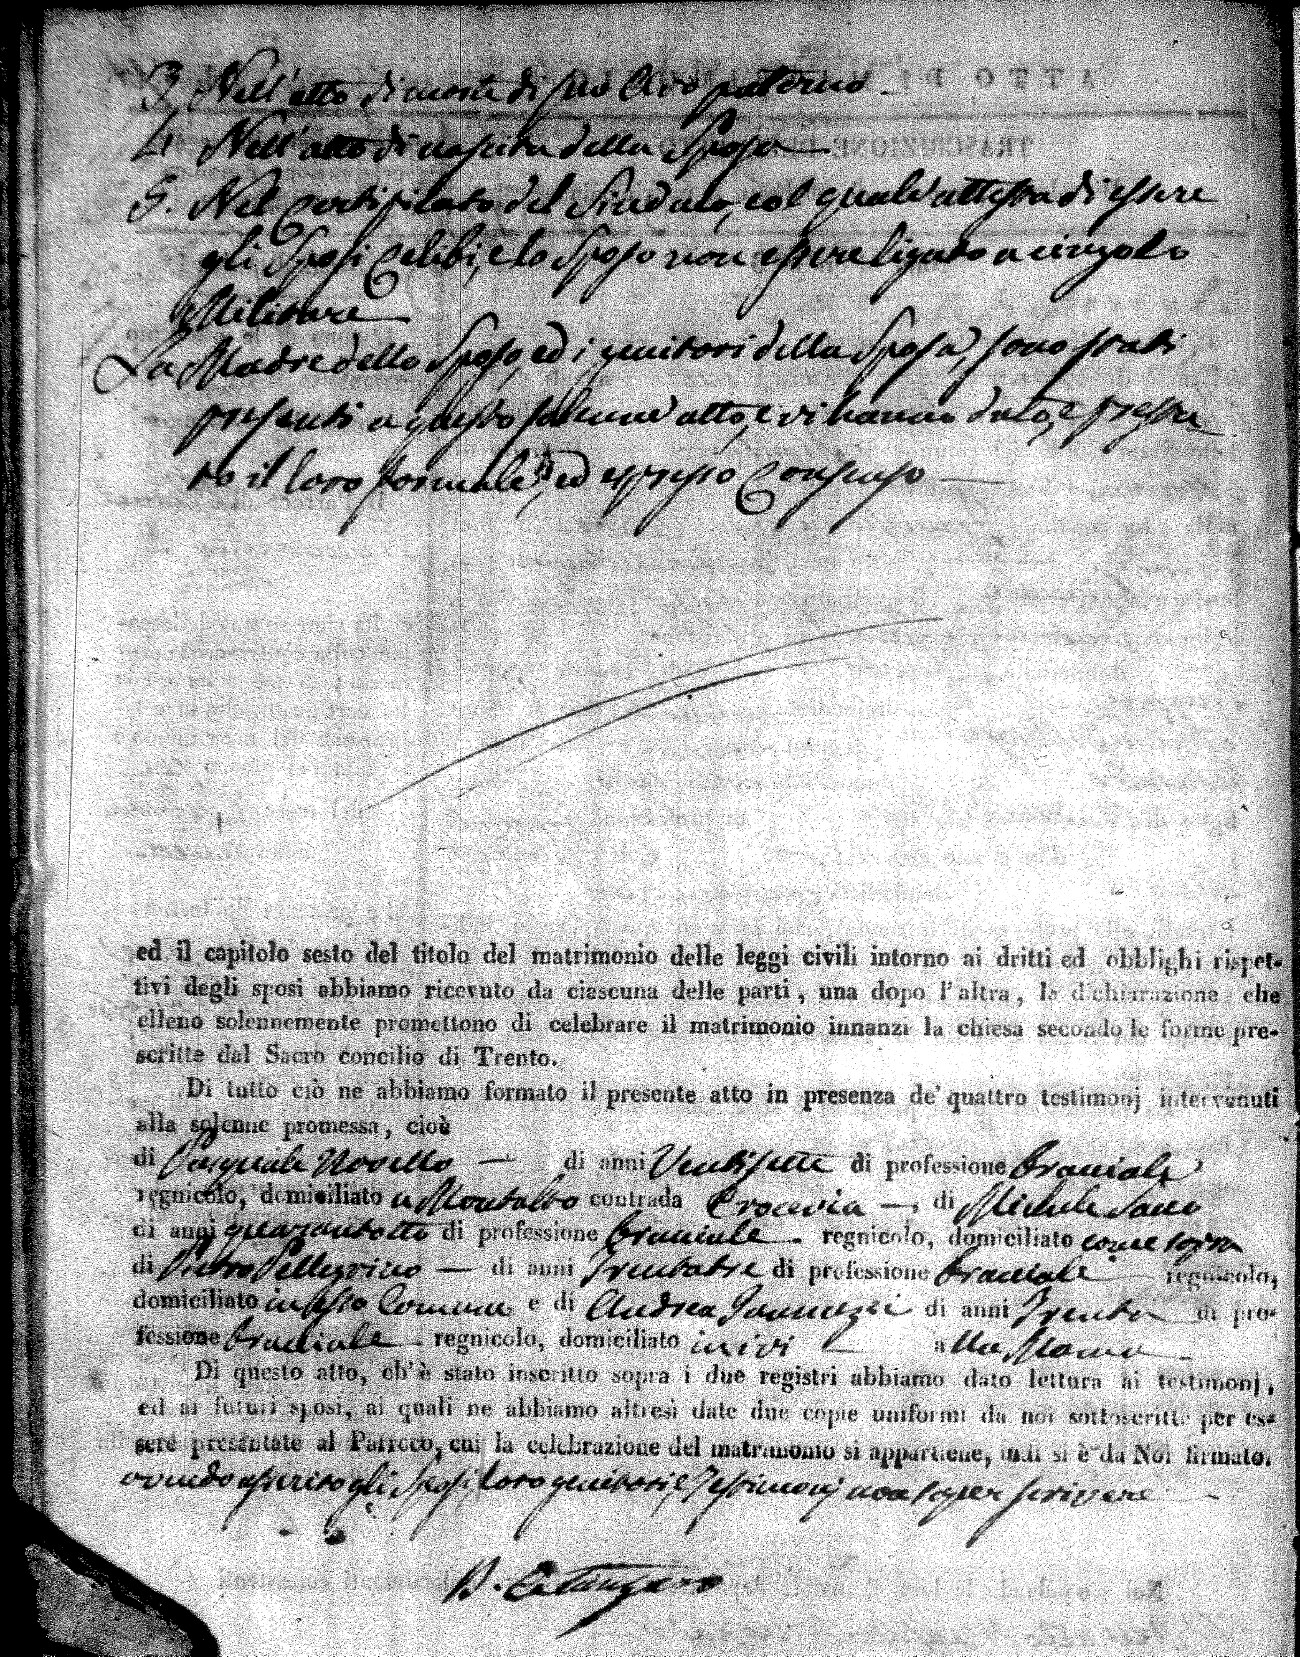 3. Nell'atto di morte di suo Avo paterno
4. Nell'atto di nascita della Sposa
5. Nel Certificato del Sindaco, col quale attesta di essere
gli Sposi Celibi, e lo Sposo non essere ligato a cingolo
Militare
La Madre dello Sposo, ed i genitori della Sposa, sono stati
presenti a questo solenne atto, e vi hanno dato, e presta
to il loro formale, ed espresso Consenso
ed il capitolo sesto del titolo del matrimonio delle leggi civili intorno ai dritti ed obblighi rispet-
tivi degli sposi abbiamo ricevuto da ciascuna delle parti, una dopo l'altra, la dichiarazione che
elleno solennemente promettono di celebrare il matrimonio innanzi la chiesa secondo le forme pre-
scritte dal Sacro concilio di Trento.
Di tutto ciò ne abbiamo formato il presente atto in presenza de' quattro testimonj intervenuti
alla solenne promessa, cioè
di Pasquale Novello di anni Ventisette di professione braciale
regnicolo, domiciliato a Montalto contrada Crocevia, di Michele Sacco
di anni quarantotto di professione braciale regnicolo, domiciliato come sopra
di Pietro Pellegrino di anni Trentatre di professione braciale regnicolo,
domiciliato in esso Comune e di Andrea Iannuzzi di anni Trenta di pro-
fessione braciale regnicolo, domiciliato ivi alla
Di questo atto, ch'è stato inscritto sopra i due registri abbiamo dato lettura ai testimonj,
ed ai futuri sposi, ai quali ne abbiamo altresì date due copie uniformi da noi sottoscritte per es-
sere presentate al Parroco, cui la celebrazione del matrimonio si appartiene, indi si è da Noi firmato.
avendo asserito gli Sposi, loro genitori, e Testimonj non saper scrivere